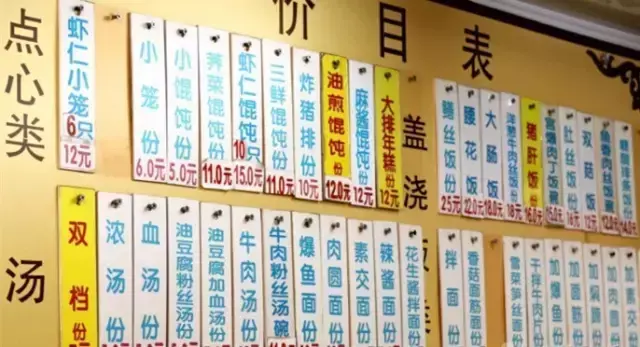 价目表
点心类
虾仁小笼6只12元
小笼份6.0元
小馄饨份5.0元
荠菜馄饨份11.0元
虾仁馄饨10只15.0元
三鲜馄饨份11.0元
炸猪排份10元
油煎馄饨份12.0元
麻酱馄饨份12元
大排年糕份12元
盖浇
鳝丝饭份25元
腰花饭份22.0元
大肠饭份18.0元
洋葱牛肉丝饭份18元
猪肝饭份16.0元
宫爆肉丁饭份15.0元
肚丝饭份16元
双菇饭份12元
汤
双档份
浓汤份
血汤份
油豆腐粉丝汤份
油豆腐加血汤份
牛肉汤份
牛肉粉丝汤碗
爆鱼面份
肉圆面份
素交面份
辣酱面份
花生酱拌面份
拌面份
香菇面筋面份
雪菜笋丝面份
干拌牛肉片份
加爆鱼份
加
加肉圆份
加素